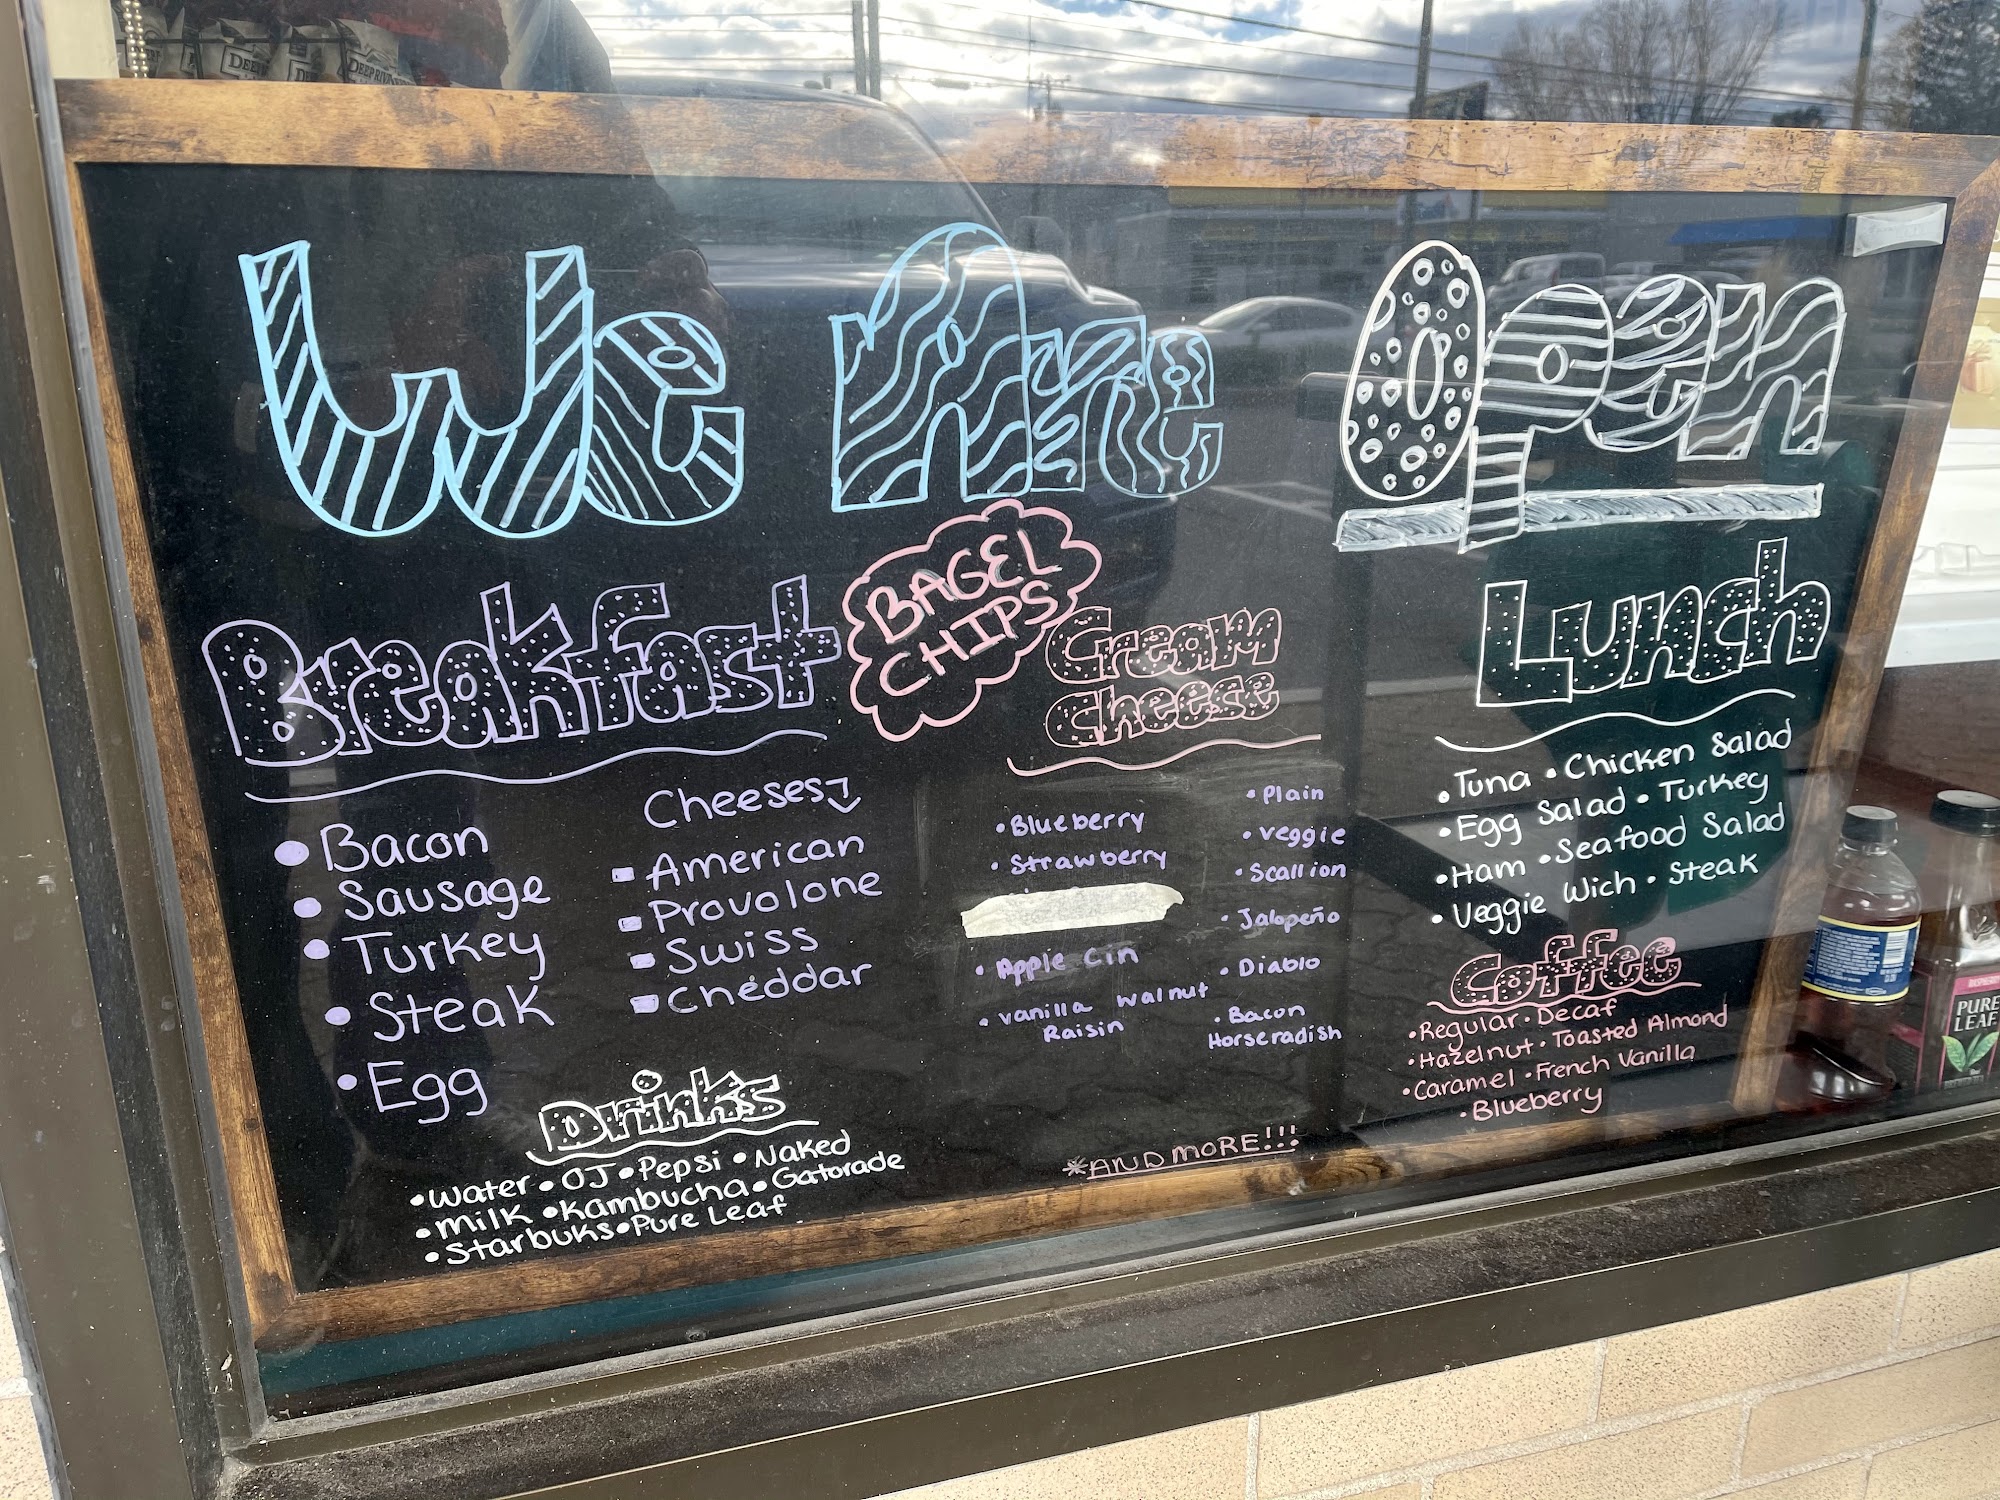 We Are Open
Breakfast
• Bacon
• Sausage
• Turkey
• Steak
• Egg
Cheeses
American
Provolone
Swiss
Cheddar
Drinks
• Water • OJ • Pepsi • Naked
• Milk • Kambucha • Gatorade
• Starbuks • Pure Leaf
BAGEL
CHIPS
Cream
Cheese
• Blueberry
• Strawberry
• Apple Cin
• Vanilla Walnut
Raisin
• Plain
• Veggie
• Scallion
• Jalapeño
• Diablo
• Bacon
Horseradish
*AND MORE!!!
Lunch
• Tuna • Chicken Salad
• Egg Salad • Turkey
• Ham • Seafood Salad
• Veggie Wich • Steak
Coffee
• Regular • Decaf
• Hazelnut • Toasted Almond
• Caramel • French Vanilla
• Blueberry
PURE
LEAF